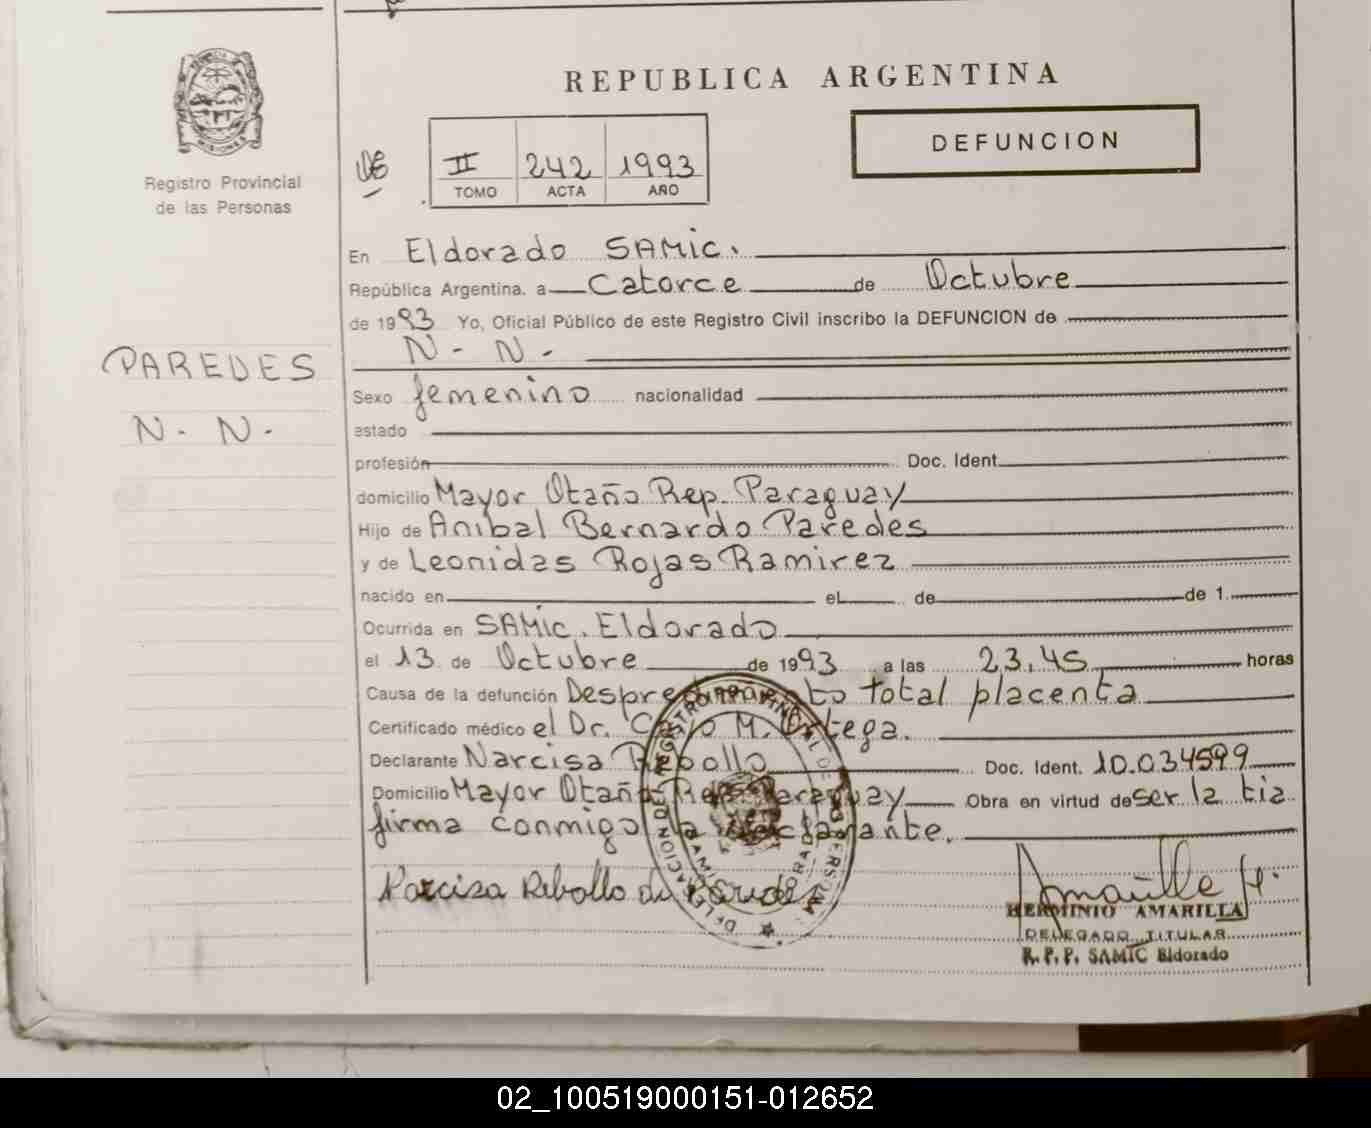 REPUBLICA ARGENTINA
DEFUNCION
II 242 1993
TOMO ACTA AÑO
MISIONES
Registro Provincial
de las Personas
En Eldorado SAMic.
República Argentina. a Catorce de Octubre
de 1993 Yo, Oficial Público de este Registro Civil inscribo la DEFUNCION de
N - N -
PAREDES
N - N -
Sexo femenino nacionalidad
estado
profesión Doc. Ident.
domicilio Mayor Otaño Rep. Paraguay
Hijo de Anibal Bernardo Paredes
y de Leonidas Rojas Ramirez
nacido en el de de 1.
Ocurrida en SAMic. Eldorado
el 13 de Octubre de 1993 a las 23,45 horas
Causa de la defunción total placenta
Certificado médico el Dr. M. Ortega.
Declarante Narcisa Rebollo Doc. Ident. 10.034599
Domicilio Mayor Otaño Rep. Paraguay Obra en virtud de ser la tia
firma conmigo la declarante.
Narcisa Rebollo de Paredes
HERMINIO AMARILLA
DELEGADO TITULAR
R. P. P. SAMIC Eldorado
02_100519000151-012652